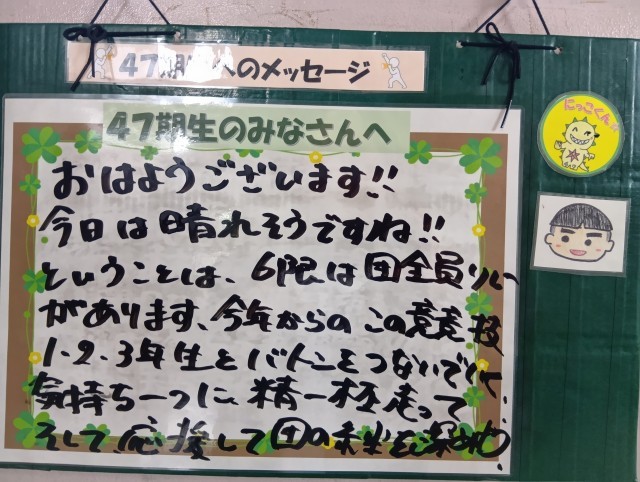 47期生へのメッセージ
47期生のみなさんへ
おはようございます!!
今日は晴れそうですね!!
ということは、6限は団全員リレー
があります、今年からのこの競技
1・2・3年生とバトンをつないでいく、
気持ち一つに、精一杯走って
そして、応援して団の
にっこくん